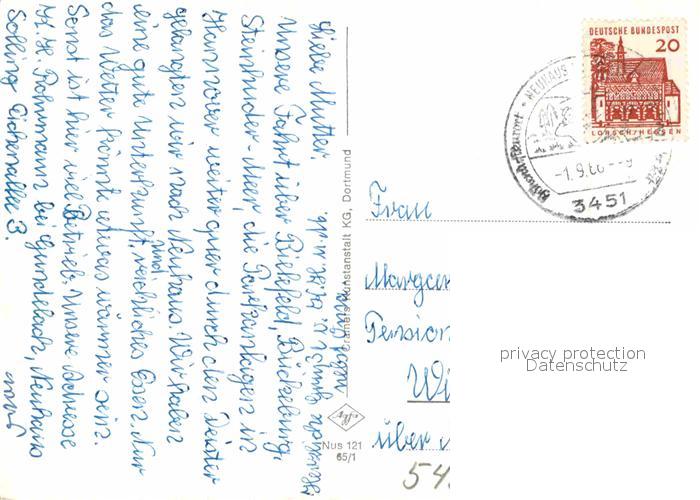 Liebe Mutter!
Unsere Fahrt über Bielefeld, Bückeburg,
Steinhuder-Meer, die Parkanlagen in
Hannover weiter quer durch den Deister
gelangten wir nach Neuhaus. Wir haben
eine gute Unterkunft, und reichliches Essen. Nur
das Wetter könnte etwas wärmer sein.
Sonst ist hier viel Betrieb. Unsere Adresse
H. Pohmann bei Gundelach, Neuhaus
Solling Eichenallee 3.
Cramers Kunstanstalt KG, Dortmund
Agfa
Nus 121
65/1
DEUTSCHE BUNDESPOST
20
LORSCH/HESSEN
NEUHAUS
-1.9.66--9
3451
Frau
Margar
Pension
Wi
über
54
privacy protection
Datenschutz